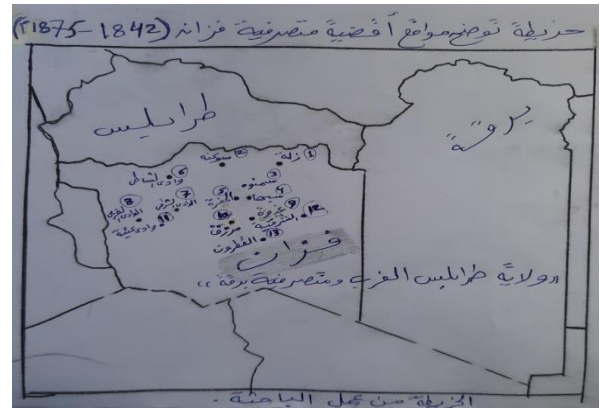 خريطة توضح مواقع أقضية متصرفية فزان (1842-1875م)
طرابلس
برقة
1 زلة
2 سوكنة
3 سمنو
4 سبها
5 الحفرة
6 وادي الشاطئ
7 الوادي الشرقي
8 الوادي الغربي
9
10 مرزق
11 وادي عتبة
12 الشرقية
13 القطرون
فزان
"ولاية طرابلس الغرب ومتصرفية برقة"
الخريطة من عمل الباحثة.